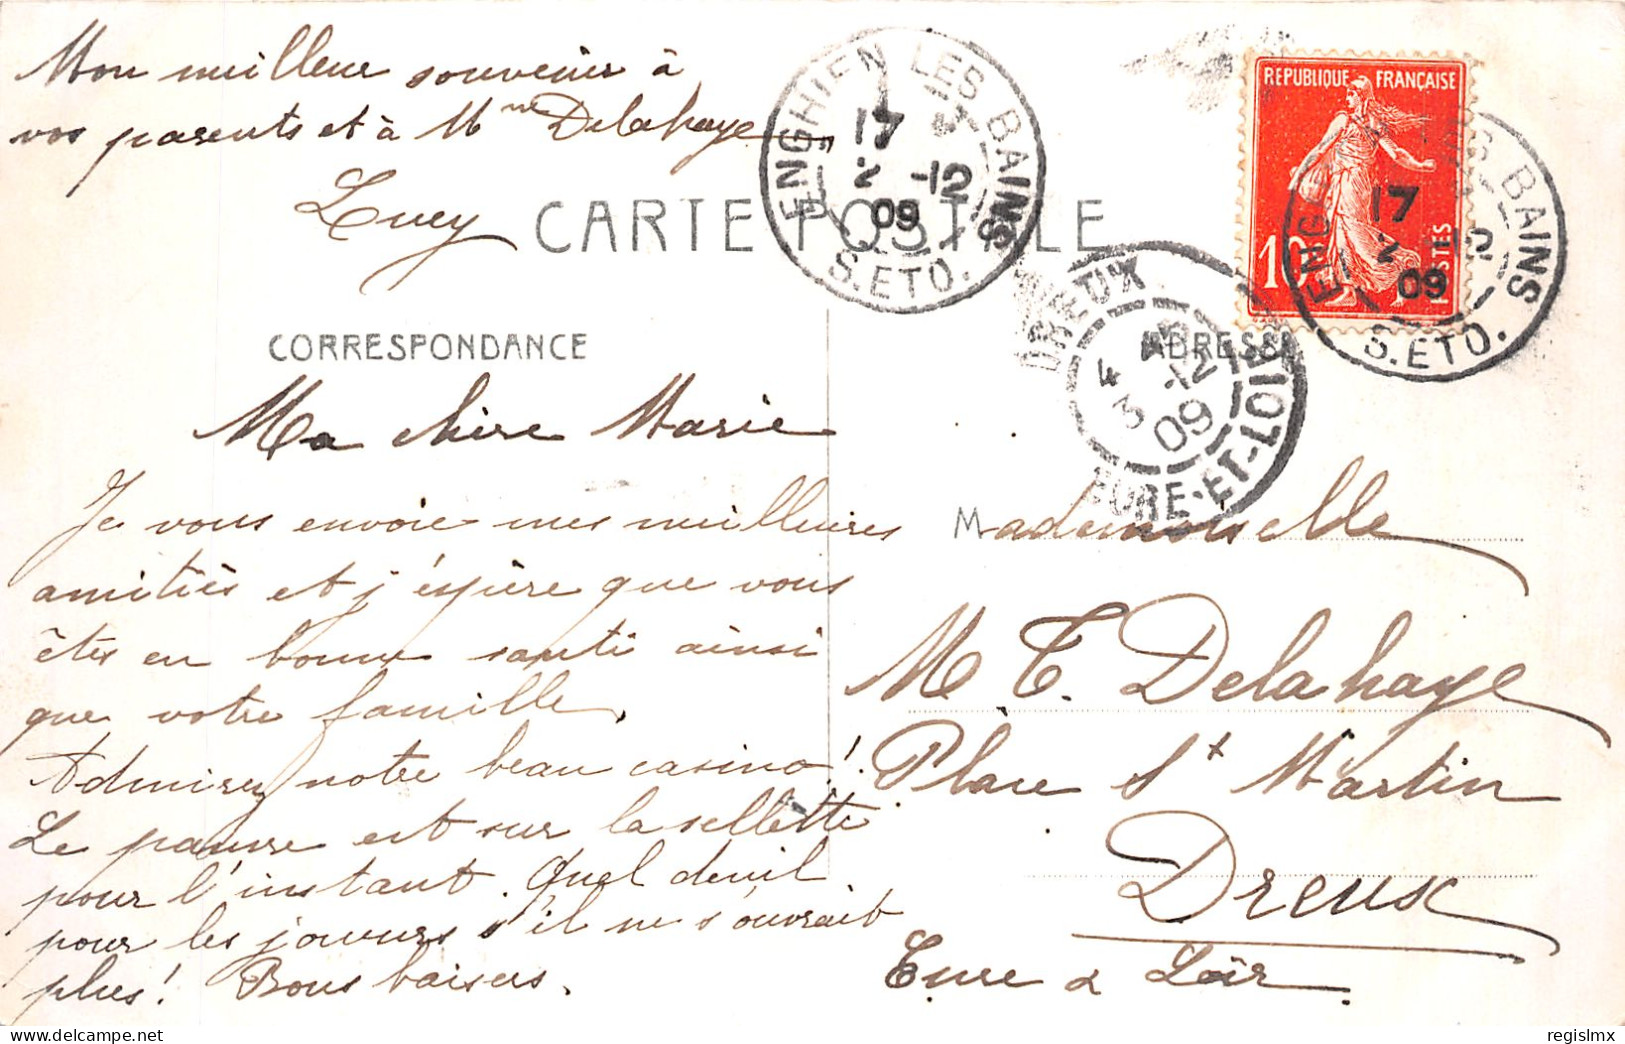 Mon meilleur souvenir à
vos parents et à Mme Delahaye
Lucy
CARTE POSTALE
ENGHIEN LES BAINS
17
2 -12
09
S.ET O.
REPUBLIQUE FRANÇAISE
10
POSTES
ENGHIEN LES BAINS
17
2 -12
09
S.ET O.
DREUX
4
3 -12
09
EURE-ET-LOIR
CORRESPONDANCE
ADRESSE
Ma chère Marie
Je vous envoie mes meilleures
amitiés et j'éspère que vous
êtes en bonne santé ainsi
que votre famille.
Admirez notre beau casino!
Le pauvre est sur la sellette
pour l'instant. Quel deuil
pour les joueurs s'il ne s'ouvrait
plus! Bons baisers.
Mademoiselle
M T. Delahaye
Place St Martin
Dreux
Eure & Loir
regislmx